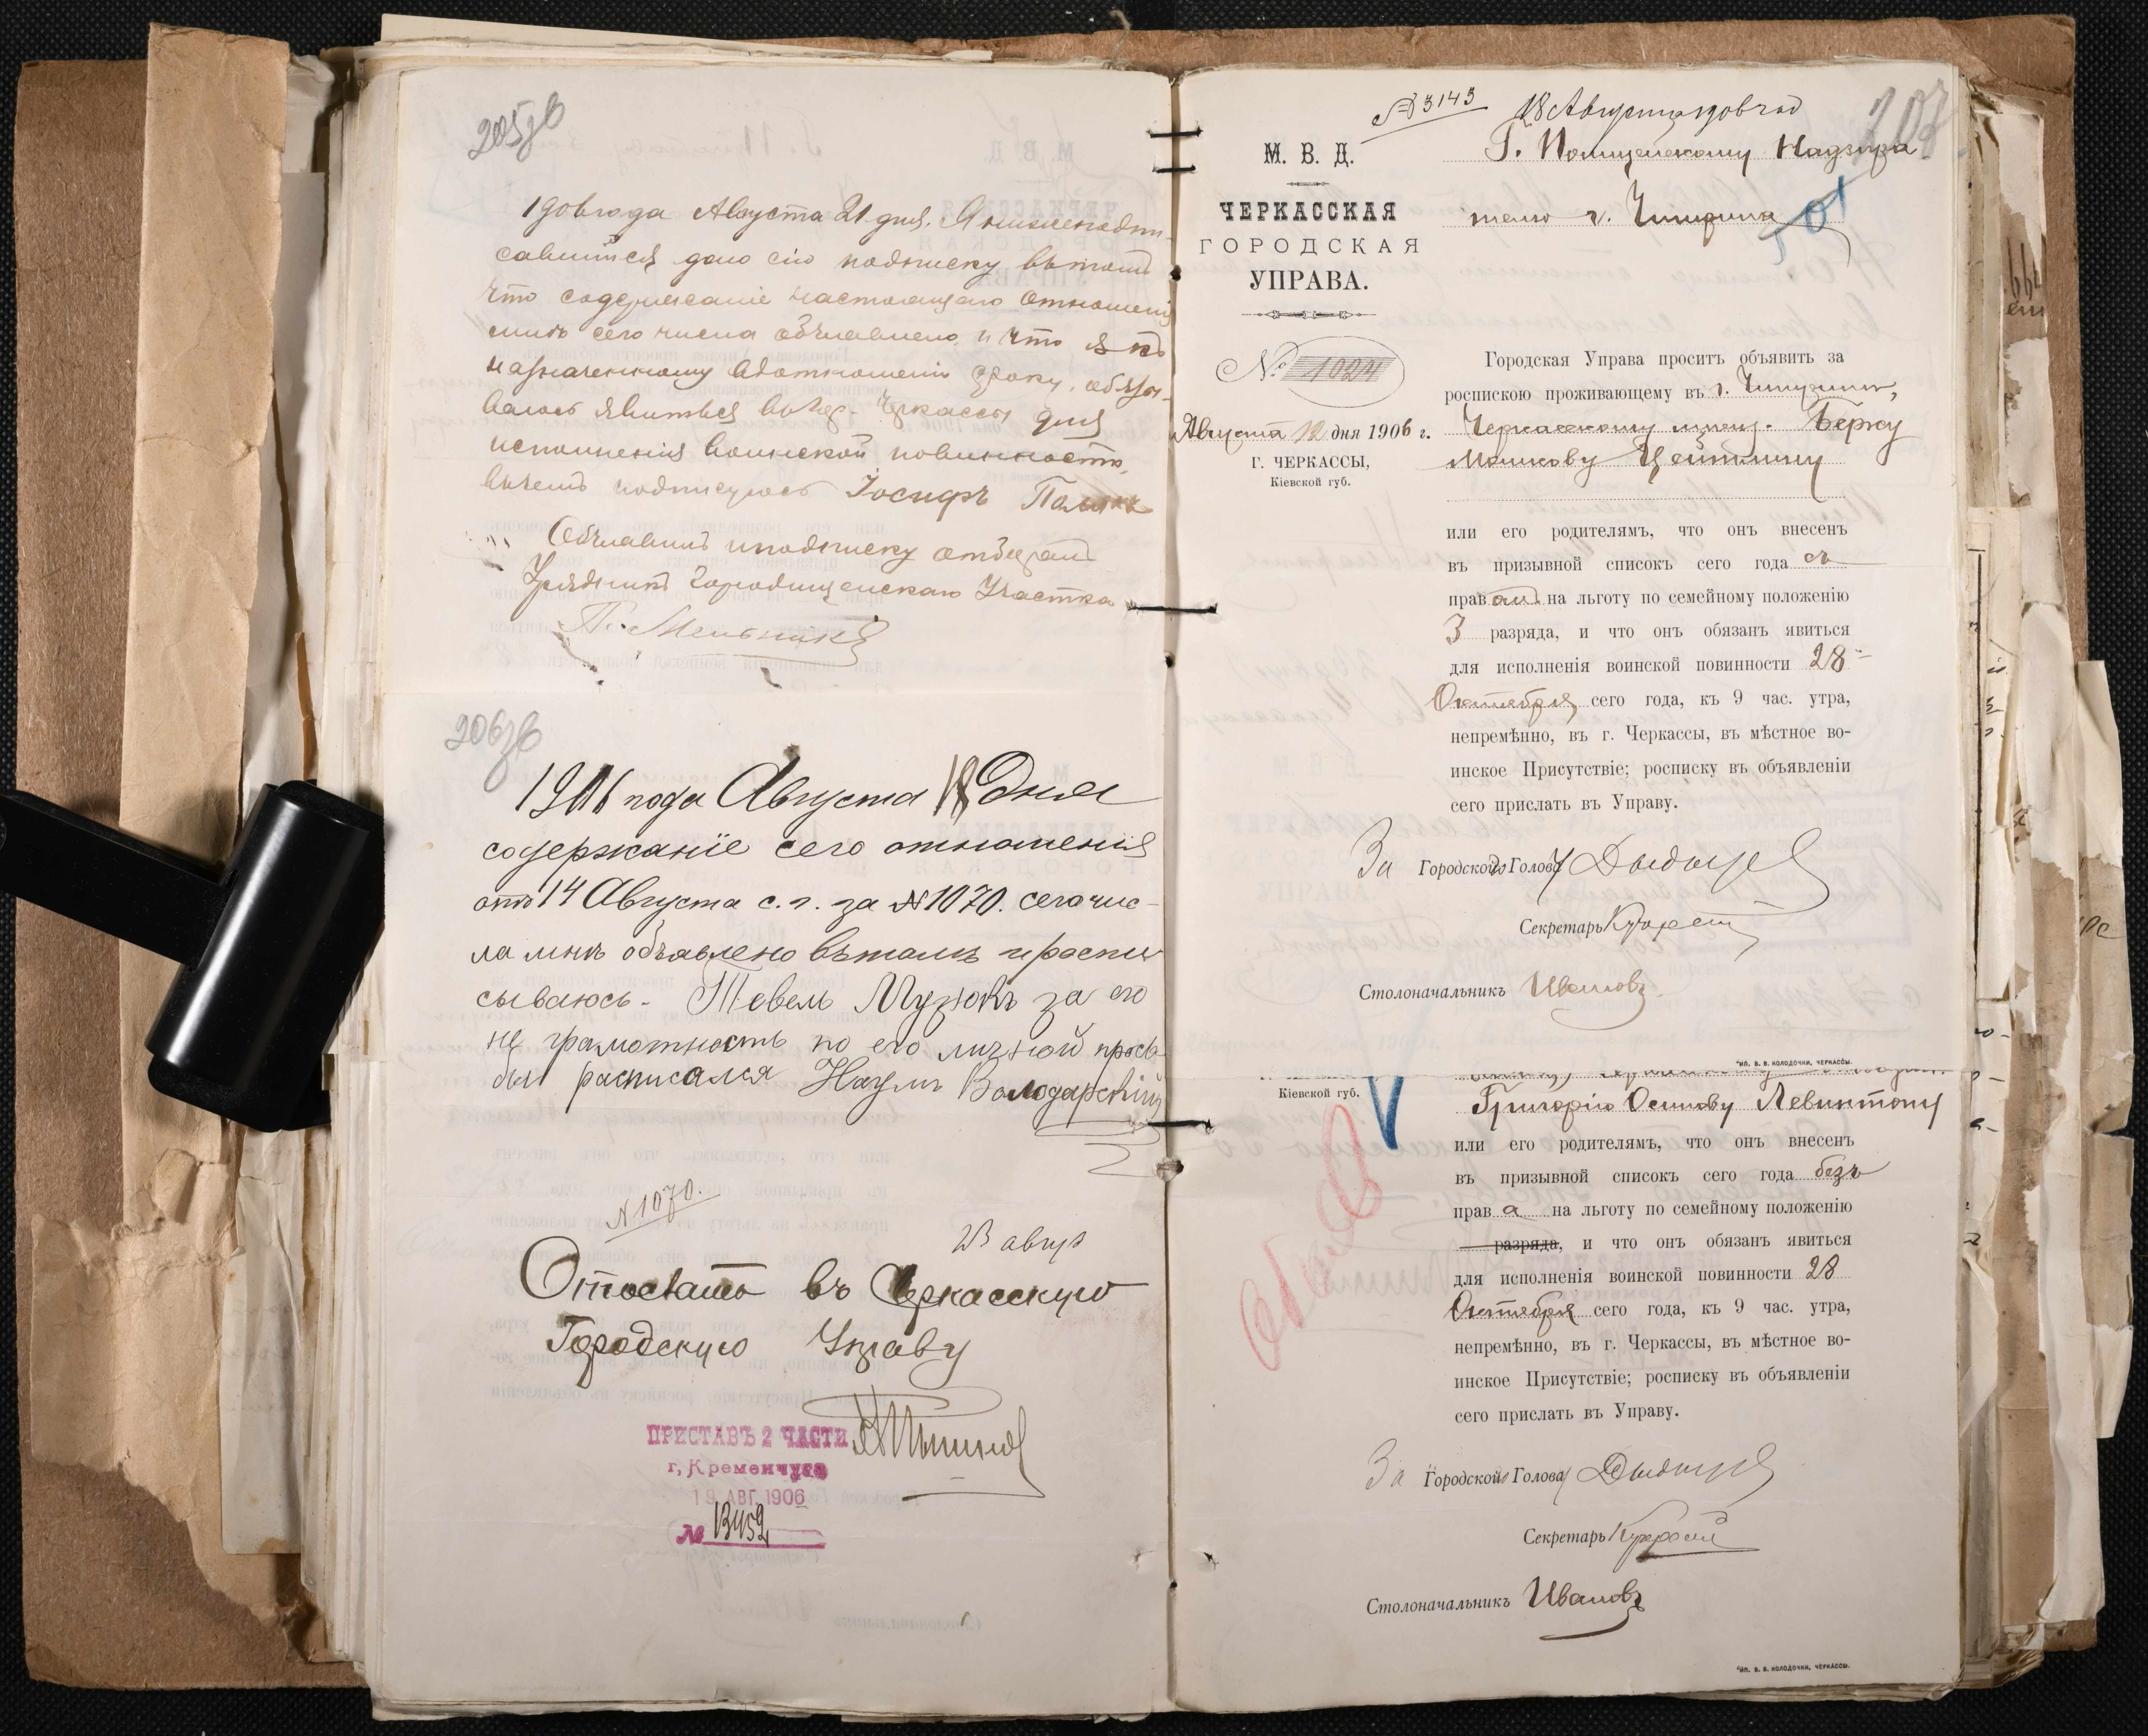 205об
1906 года Августа 21 дня. Я нижеподпи-
савшійся даю сію подписку въ томъ
что содержаніе настоящаго отношенія
мнѣ сего числа объявлено, и что я къ
назначенному въ отношеніи сроку, обязы-
ваюсь явиться въ гор. Черкассы для
исполненія воинской повинности,
въ чемъ подписуюсь Іосифъ
Объявилъ и подписку отбиралъ
Урядникъ Городищенскаго Участка
П. Мельникъ
206об
1906 года Августа 18 Дня
содержаніе сего отношенія
отъ 14 Августа с. г. за № 1070. сего чис-
ла мнѣ объявлено въ томъ и распи
сываюсь - Тевель Музюкъ за его
не грамотность по его личной прозь
бы расписался Наумъ Володарскій
N 1070.
23 авгус
Отослать въ Черкасскую
Городскую Управу
ПРИСТАВЪ 2 ЧАСТИ
г. Кременчуга
19 АВГ. 1906
№ 13452
№ 3143 18 Августа 1906 год
207
М. В. Д.
Г. Полицейскому Надзира
телю г. Чигирина
ЧЕРКАССКАЯ
ГОРОДСКАЯ
УПРАВА.
№ 1024
Августа 12 дня 1906 г.
Г. ЧЕРКАССЫ,
Кіевской губ.
Городская Управа проситъ объявить за
роспискою проживающему въ г. Чигирин,
Черкасскому мѣщ. Берку
Мошкову Цейтлину
или его родителямъ, что онъ внесенъ
въ призывной списокъ сего года съ
прав ом на льготу по семейному положенію
3 разряда, и что онъ обязанъ явиться
для исполненія воинской повинности 28
Октября, сего года, къ 9 час. утра,
непремѣнно, въ г. Черкассы, въ мѣстное во-
инское Присутствіе; росписку въ объявленіи
сего прислать въ Управу.
За Городского Голову
Секретарь
Столоначальникъ Ивановъ
Тип. В. В. КОЛОДОЧКИ, ЧЕРКАССЫ.
Кіевской губ.
Григорію Осипову Левинтону
или его родителямъ, что онъ внесенъ
въ призывной списокъ сего года безъ
прав а на льготу по семейному положенію
разряда, и что онъ обязанъ явиться
для исполненія воинской повинности 28
Октября сего года, къ 9 час. утра,
непремѣнно, въ г. Черкассы, въ мѣстное во-
инское Присутствіе; росписку въ объявленіи
сего прислать въ Управу.
За Городского Голову
Секретарь
Столоначальникъ Ивановъ
Тип. В. В. КОЛОДОЧКИ, ЧЕРКАССЫ.